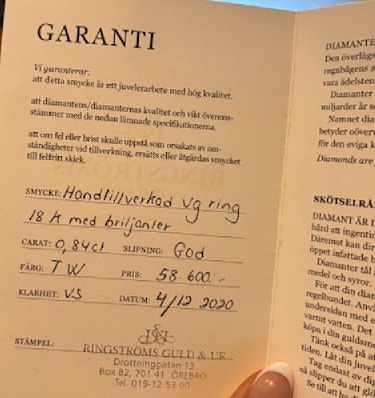 GARANTI
Vi garanterar:
att detta smycke är ett juvelerarbete med hög kvalitet.
att diamantens/diamanternas kvalitet och vikt överens-
stämmer med de nedan lämnade specifikationerna.
att om fel eller brist skulle uppstå som orsakats av om-
ständigheter vid tillverkning, ersätts eller åtgärdas smycket
till felfritt skick.
SMYCKE: Handtillverkad vg ring
18 k med briljanter
CARAT: 0,84ct SLIPNING: God
FÄRG: TW PRIS: 58 600:-
KLARHET: VS DATUM: 4/12 2020
STÄMPEL:
RINGSTRÖMS GULD & UR
Drottninggatan 13
Box 82, 701 41 ÖREBRO
Tel. 019-12 53 00
DIAMANTE
Den överlägs
regnbågens a
vara ädelsten
Diamanter
miljarder år s
Namnet dia
betyder oöver
för den eviga k
Diamonds are
SKÖTSELRÅ
DIAMANT ÄR D
hård att ingentin
Däremot kan dir
öppet infattade b
Diamanter tål
medel och syror.
För att din dia
regelbundet. Anv
undersidan med e
varmt vatten. Det
köpa i din guldsme
Tänk också på at
tiden. Låt din juvel
Tag endast av dig
så slipper du att glö
Se till att ha d